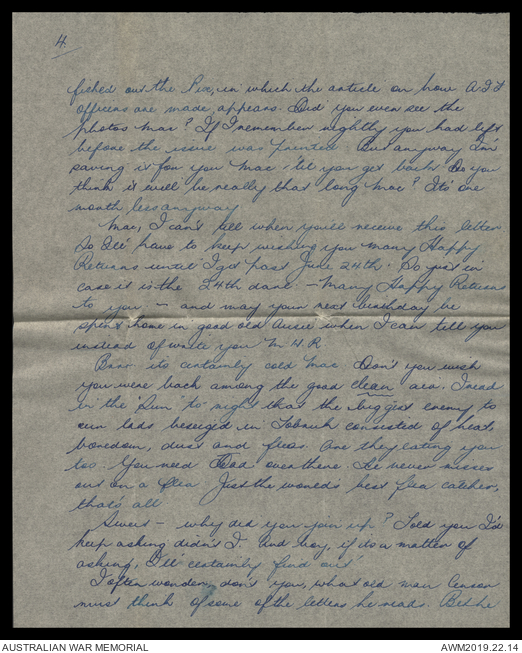 4.
fished out the Pix, in which the article on how A.I.F
officers are made, appears. Did you ever see the
photos Mac? If I remember rightly you had left
before the issue was printed. But anyway I'm
saving it for you Mac, 'till you get back. Do you
think it will be really that long Mac? It's one
month less anyway
Mac, I can't tell when you'll receive this letter
So I'll have to keep wishing you Many Happy
Returns until I get past June 24th. So just in
case it is the 24th dare. - Many Happy Returns
to you - and may your next birthday be
spent home in good old Aussie when I can tell you
instead of write you M.H.R.
Brrr its certainly cold Mac. Don't you wish
you were back among the good clean air. I read
in the "Sun" to night that the biggest enemy, to
our lads beseigd in Tobruk consisted of heat,
boredom, dust and fleas. Are they eating you
too. You need Dad over there. He never misses
out on a flea. Just the world's best flea catcher,
that's all
Sweet - why did you join up? Told you I'd
keep asking didn't I. And boy, if its a matter of
asking, I'll certainly find out
I often wonder, don't you, what old man Censor
must think of some of the letters he reads. Bet he
AUSTRALIAN WAR MEMORIAL
AWM2019.22.14